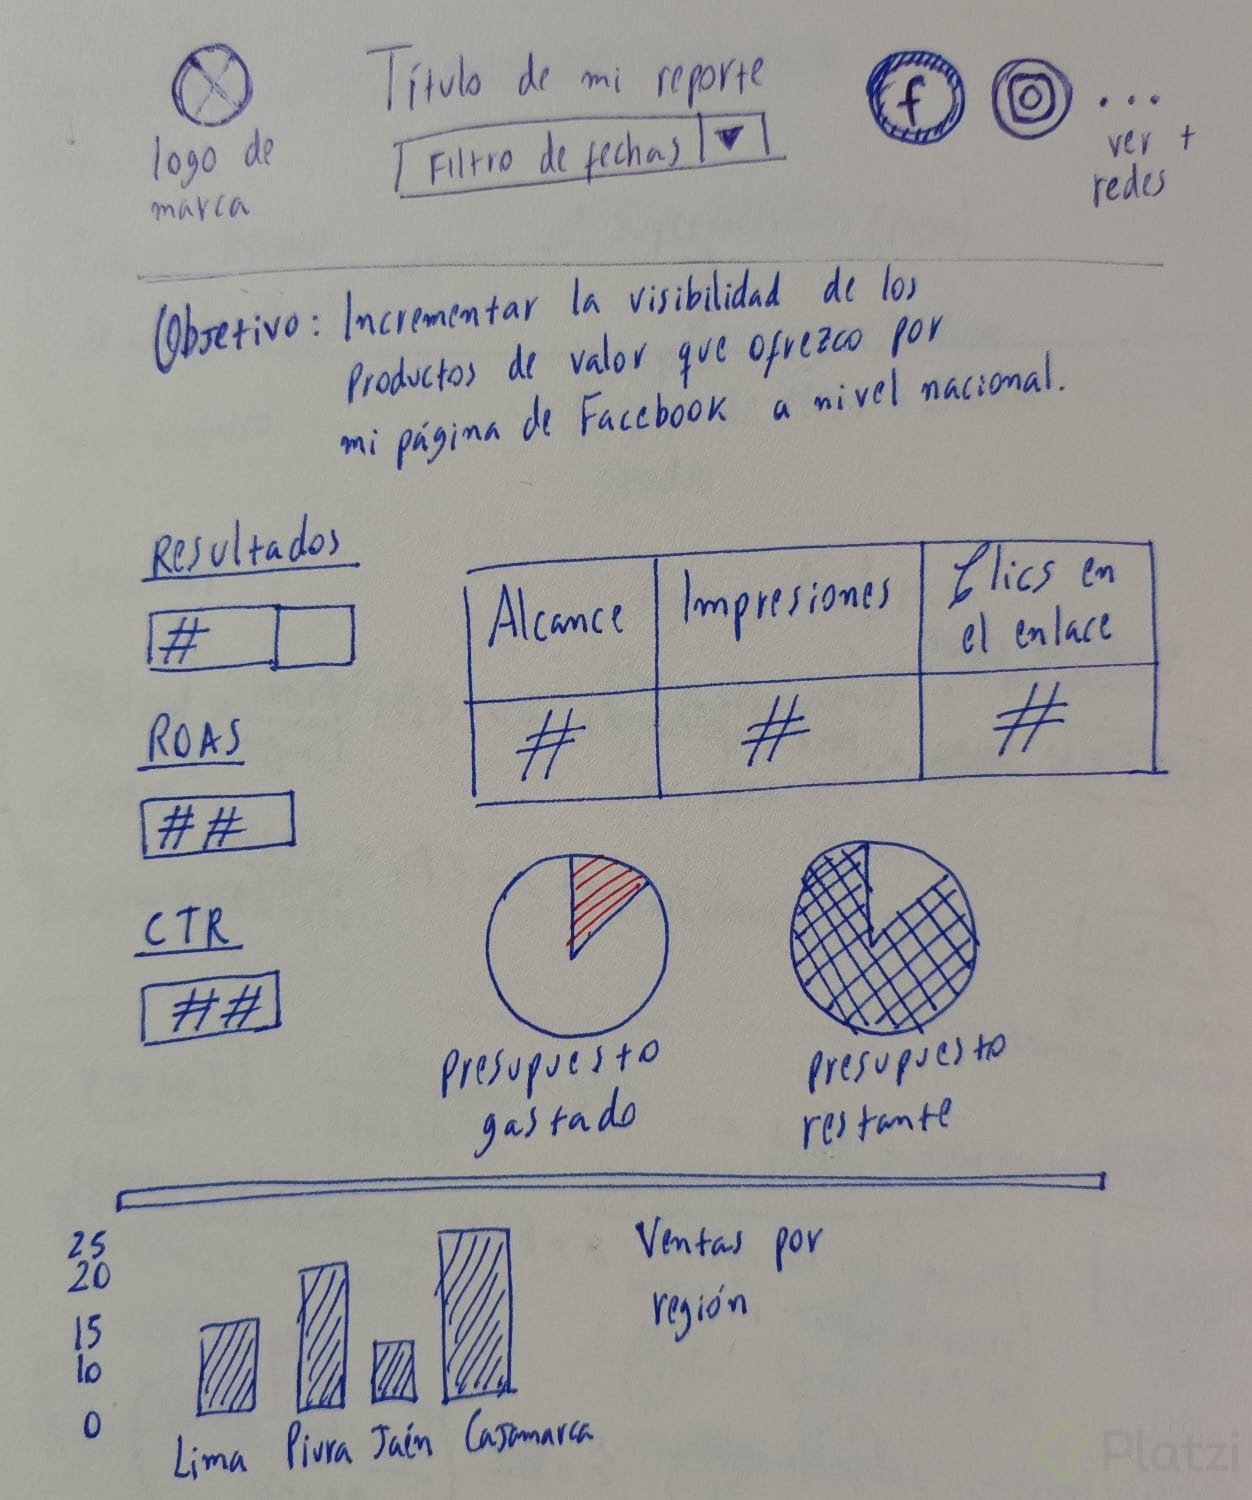 Título de mi reporte
Filtro de fechas
logo de
marca
f
...
ver +
redes
Objetivo: Incrementar la visibilidad de los
Productos de valor que ofrezco por
mi página de Facebook a nivel nacional.
Resultados
#
ROAS
##
CTR
##
Alcance
Impresiones
Clics en
el enlace
#
#
#
Presupuesto
gastado
Presupuesto
restante
Ventas por
región
25
20
15
10
0
Lima
Piura
Jaén
Cajamarca
Platzi